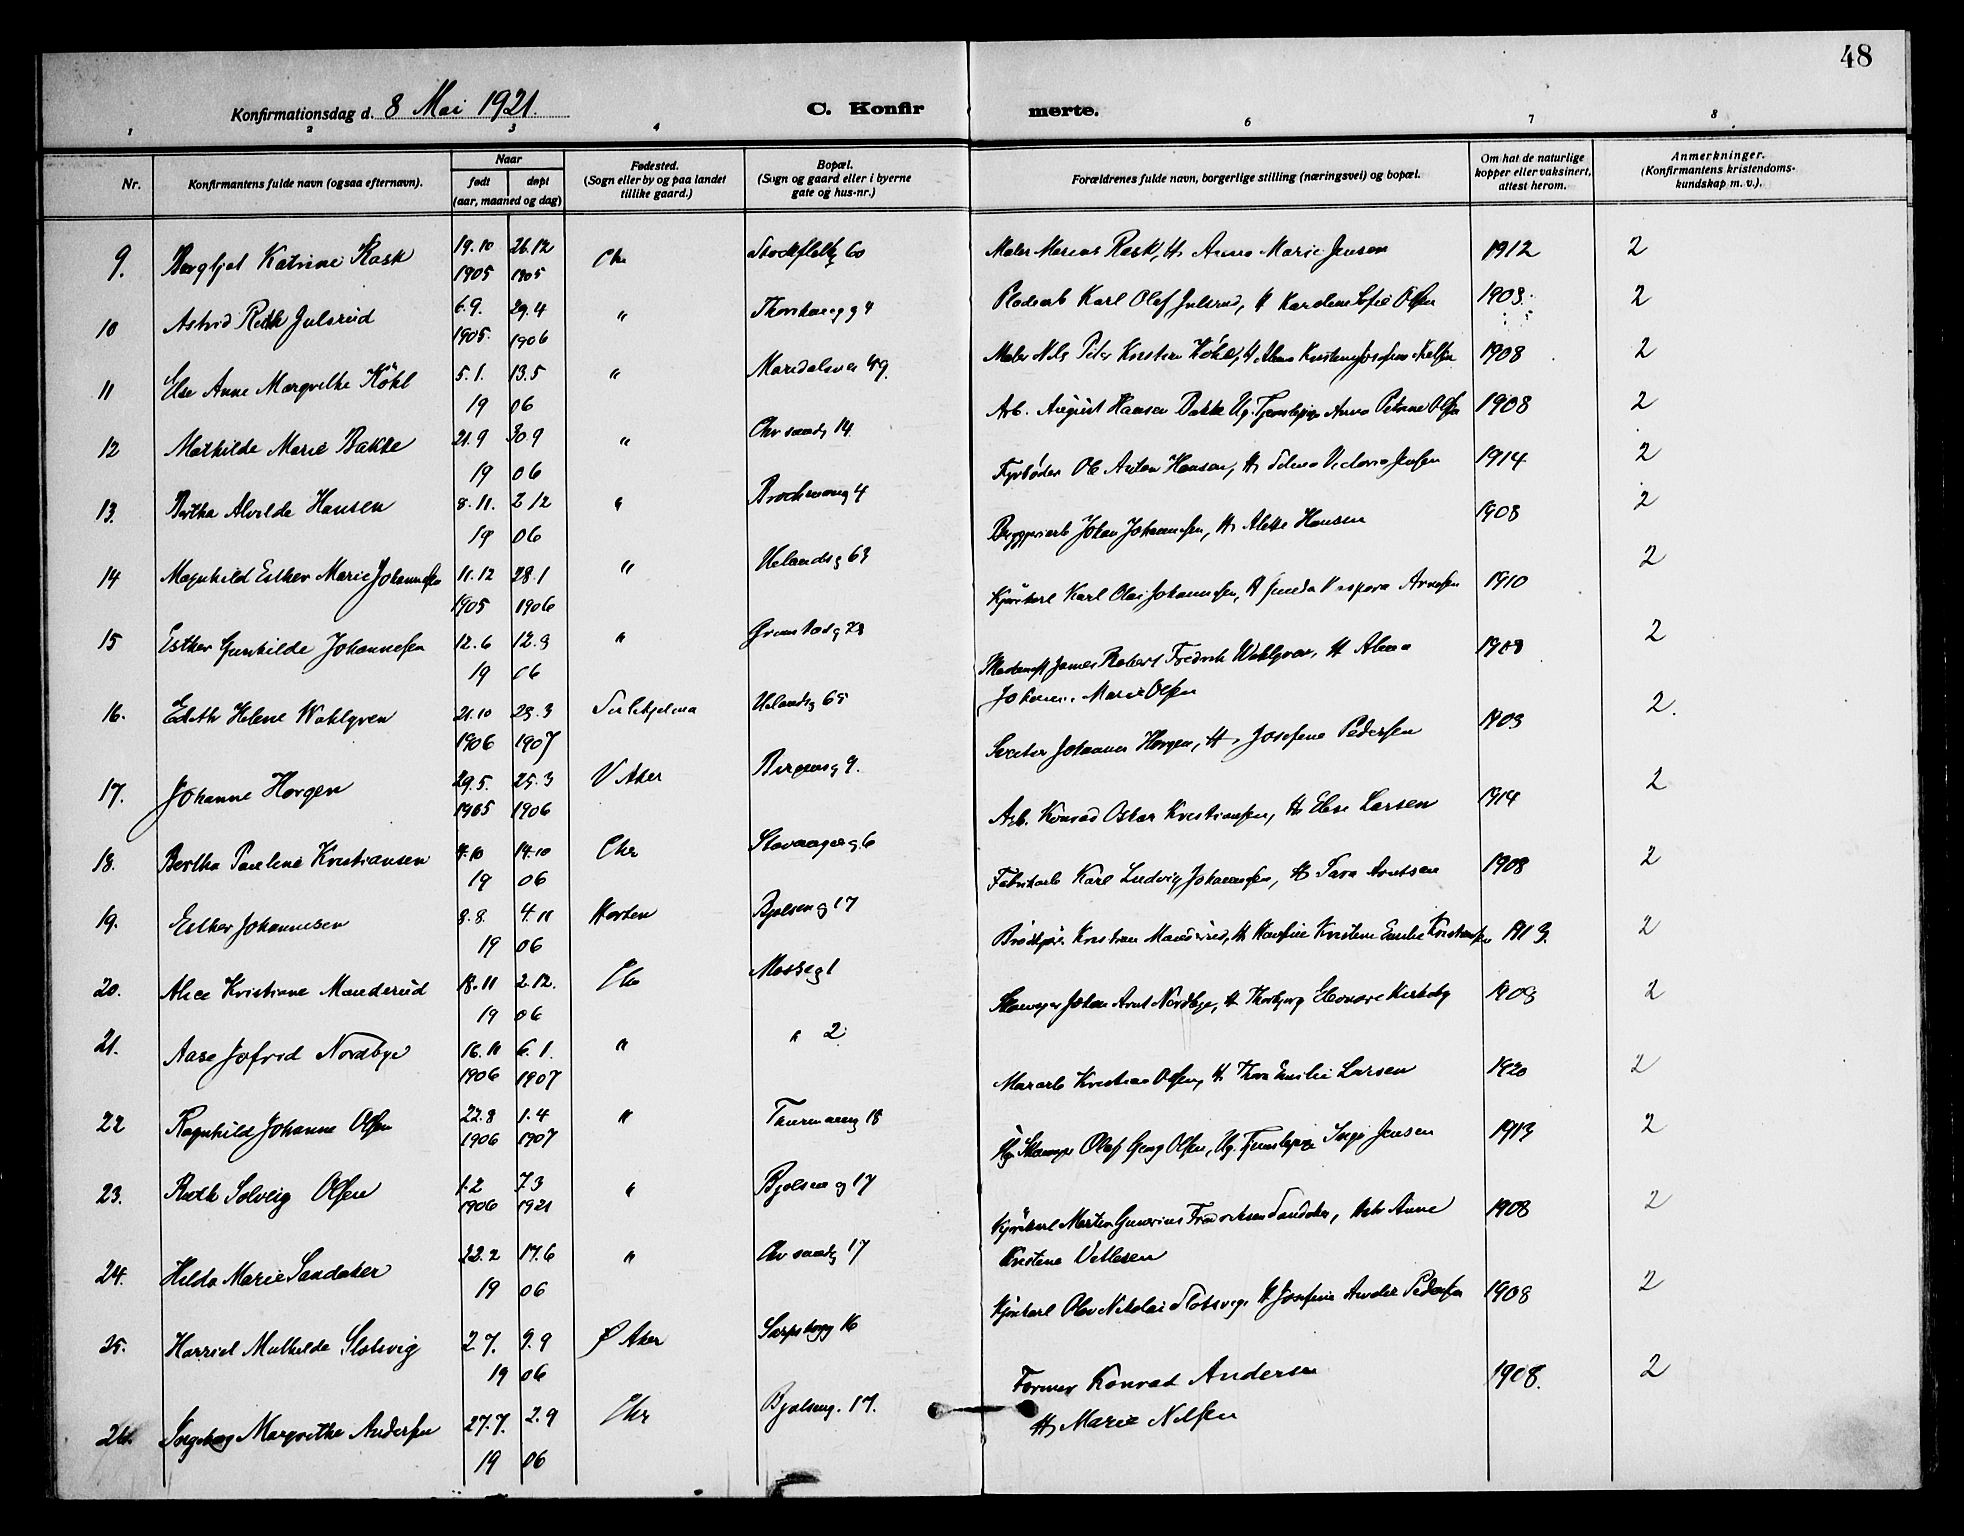 48
Konfirmationsdag d. 8 Mai 1921. C. Konfir merte.
1 2 3 4 6 7 8
Nr. Konfirmantens fulde navn (ogsaa efternavn). Naar født døpt (aar, maaned og dag) Fødested. (Sogn eller by og paa landet tillike gaard.) Bopæl. (Sogn og gaard eller i byerne gate og hus-nr.) Forældrenes fulde navn, borgerlige stilling (næringsvei) og bopæl. Om hat de naturlige kopper eller vaksinert, attest herom. Anmerkninger. (Konfirmantens kristendoms-kundskap m. v.).
9. Bergljot Katrine Rask 19.10 1905 26.12 1905 Chr 60 Maler Marius Rask, H. Anna Marie Jensen 1912 2
10 Astrid Ruth Julsrud 6.9. 1905. 29.4 1906 " 4 Karl Olaf Julsrud, H Karoline Sofie Olsen 2
11 Else Anne Margrethe Köhl 5.1. 13.5 19 06 " Maridalsvei 49. Maler Nils Peter Kristian Köhl, H 1908 2
12 Mathilde Marie Bakke 21.9 30 9 19 06 " Chr sandg 14. Arb. August Hansen Bakke Ug. Tjenstepige Anna Petrine Olsen 1908 2
13. Bertha Alvilde Hansen 8.11. 2 12 19 06 " 4 Fyrbøder Ole Anton Hansen, H. Selma Victoria Jensen 1914 2
14 Magnhild Esther Marie Johannsen 11.12 1905 28.1 1906 " Uelandsg 63 Bryggeriarb Johan Johannsen, H. Hansen 1908 2
15 Esther Gunhilde Johannesen 12.6 12.9 19 06 " Grimstadg 28 Kjørekarl Karl Olai Johannesen, H 1910 2
16. Edith Helene Wahlgren 21.10 1906 23.3 1907 Sulitjelma Uelandsg 65 James Robert Fredrik Wahlgren, H
Johanne Marie Olsen 2.
17. Johanne Horgen 29.5. 1905 25.3 1906 V Aker Bergensg 9. Johannes Horgen, H. Josefine Pedersen 2
18. Bertha Pauline Kristiansen 14.10 19 06 Chr Stavangerg 6 Arb. Konrad Oskar Kristiansen, H. Else Larsen 1914 2
19. Esther Johannesen 8.8. 4.11 19 06 Horten Bjølseng 17 Fabrikarb Karl Ludvig Johannesen, H. Arntsen 1908 2
20. Alice Kristiane Manderud 18.11 2.12. 19 06 Chr Mosseg 1 Kristian Manderud, H. Kristine Emilie Kristiansen 1913. 2
21. Aase Jofrid Nordbye 16.11 1906 6.1. 1907 " " 2 Johan Arnt Nordbye, H. Thorbjørg Eleonore Kirkeby 2
22 Ragnhild Johanne Olsen 22.8 1906 1.4 1907 " Thurmanng 18 Kristian Olsen, H. Thora Emilie Larsen 1920 2
23. Ruth Solveig Olsen 1.2 1906 7 3 1921 " Bjølseng 17 Olaf Georg Olsen, Ug. Tjenstepige Inga Jensen 1913 2
24. Hilda Marie Sandaker 22.2 17.6 19 06 " Chr sandg 17 Kjørekarl Martin Gunerius Fredriksen Sandaker, Anne
Kristine Vetlesen 1908 2
25. Harriet Mathilde Slotsvig 2.7. 9.9 19 06 Ø Aker Sarpsborgg 16 Kjørekarl Olav Nikolai Slotsvig H Josefine Pedersen 1908 2
26. Ingeborg Margrethe Andersen 27.7. 2.9 19 06 Chr Bjølseng. 17. Former Konrad Andersen
H. Marie Nilsen 1908. 2